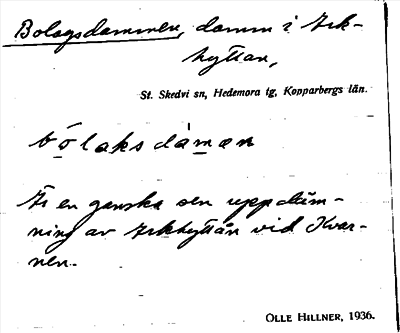 Bolagsdammen, damm i Ark-
hyttan,
St. Skedvi sn, Hedemora tg, Kopparbergs län.
bo̱laksdàm̱æn
Är en ganska sen uppdäm-
ning av Arkhyttån vid Kvar-
nen.
OLLE HILLNER, 1936.